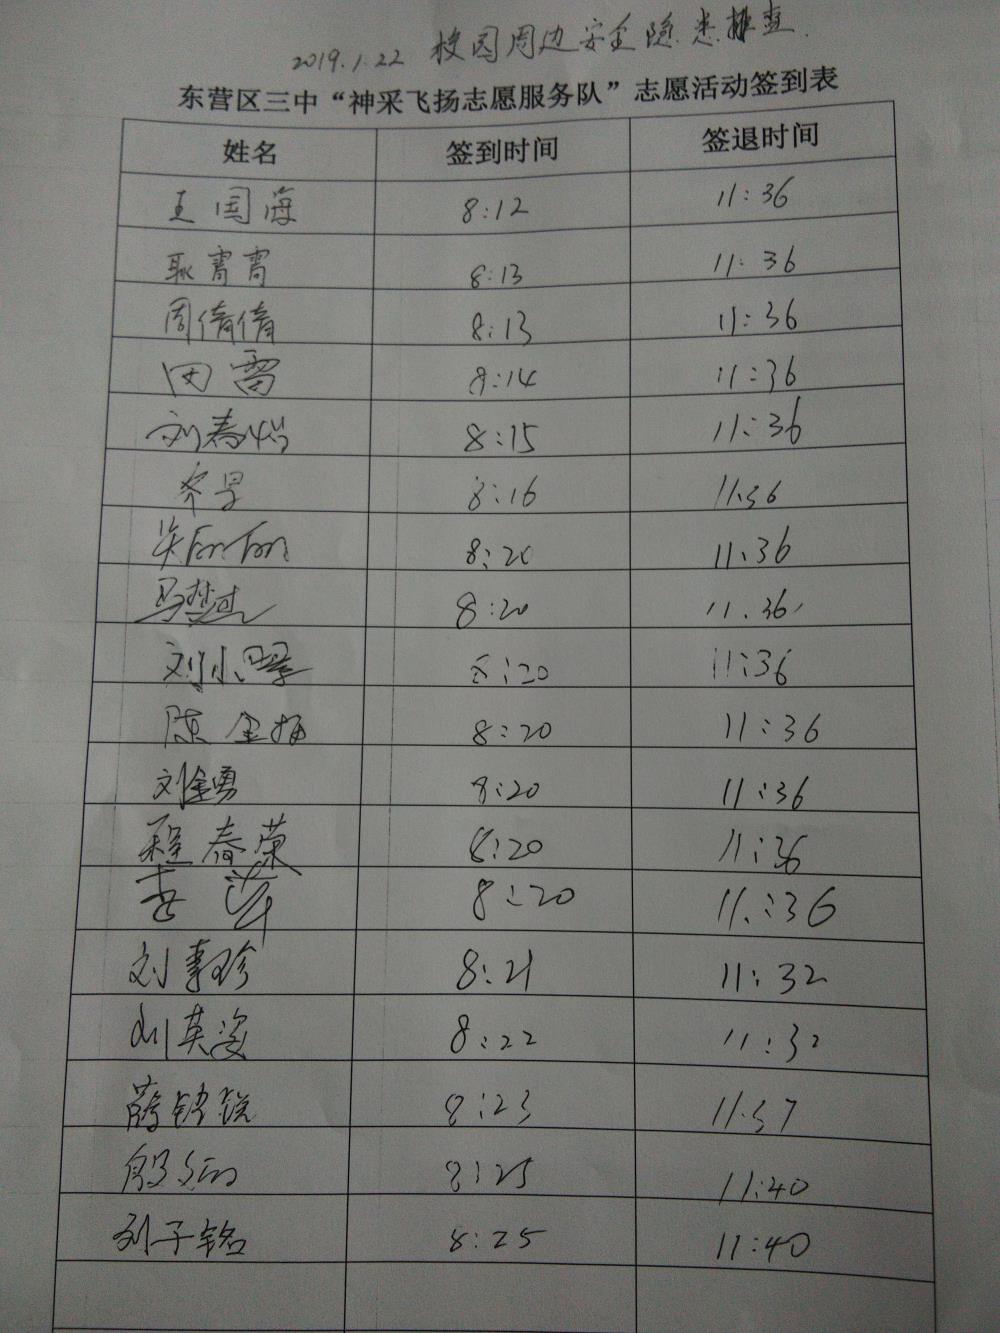 2019.1.22 校园周边安全隐患排查.
东营区三中“神采飞扬志愿服务队”志愿活动签到表
姓名 签到时间 签退时间
王国海 8:12 11:36
耿霄霄 8:13 11:36
周倩倩 8:13 11:36
田雷 8:14 11:36
刘春 8:15 11:36
8:16 11:36
8:20 11:36
马楚杰 8:20 11.36
刘小翠 8:20 11:36
陈金梅 8:20 11:36
刘金勇 8:20 11:36
程春荣 8:20 11:36
李萍 8:20 11:36
刘素珍 8:21 11:32
刘英姿 8:22 11:32
8:23 11:37
8:25 11:40
刘子铭 8:25 11:40